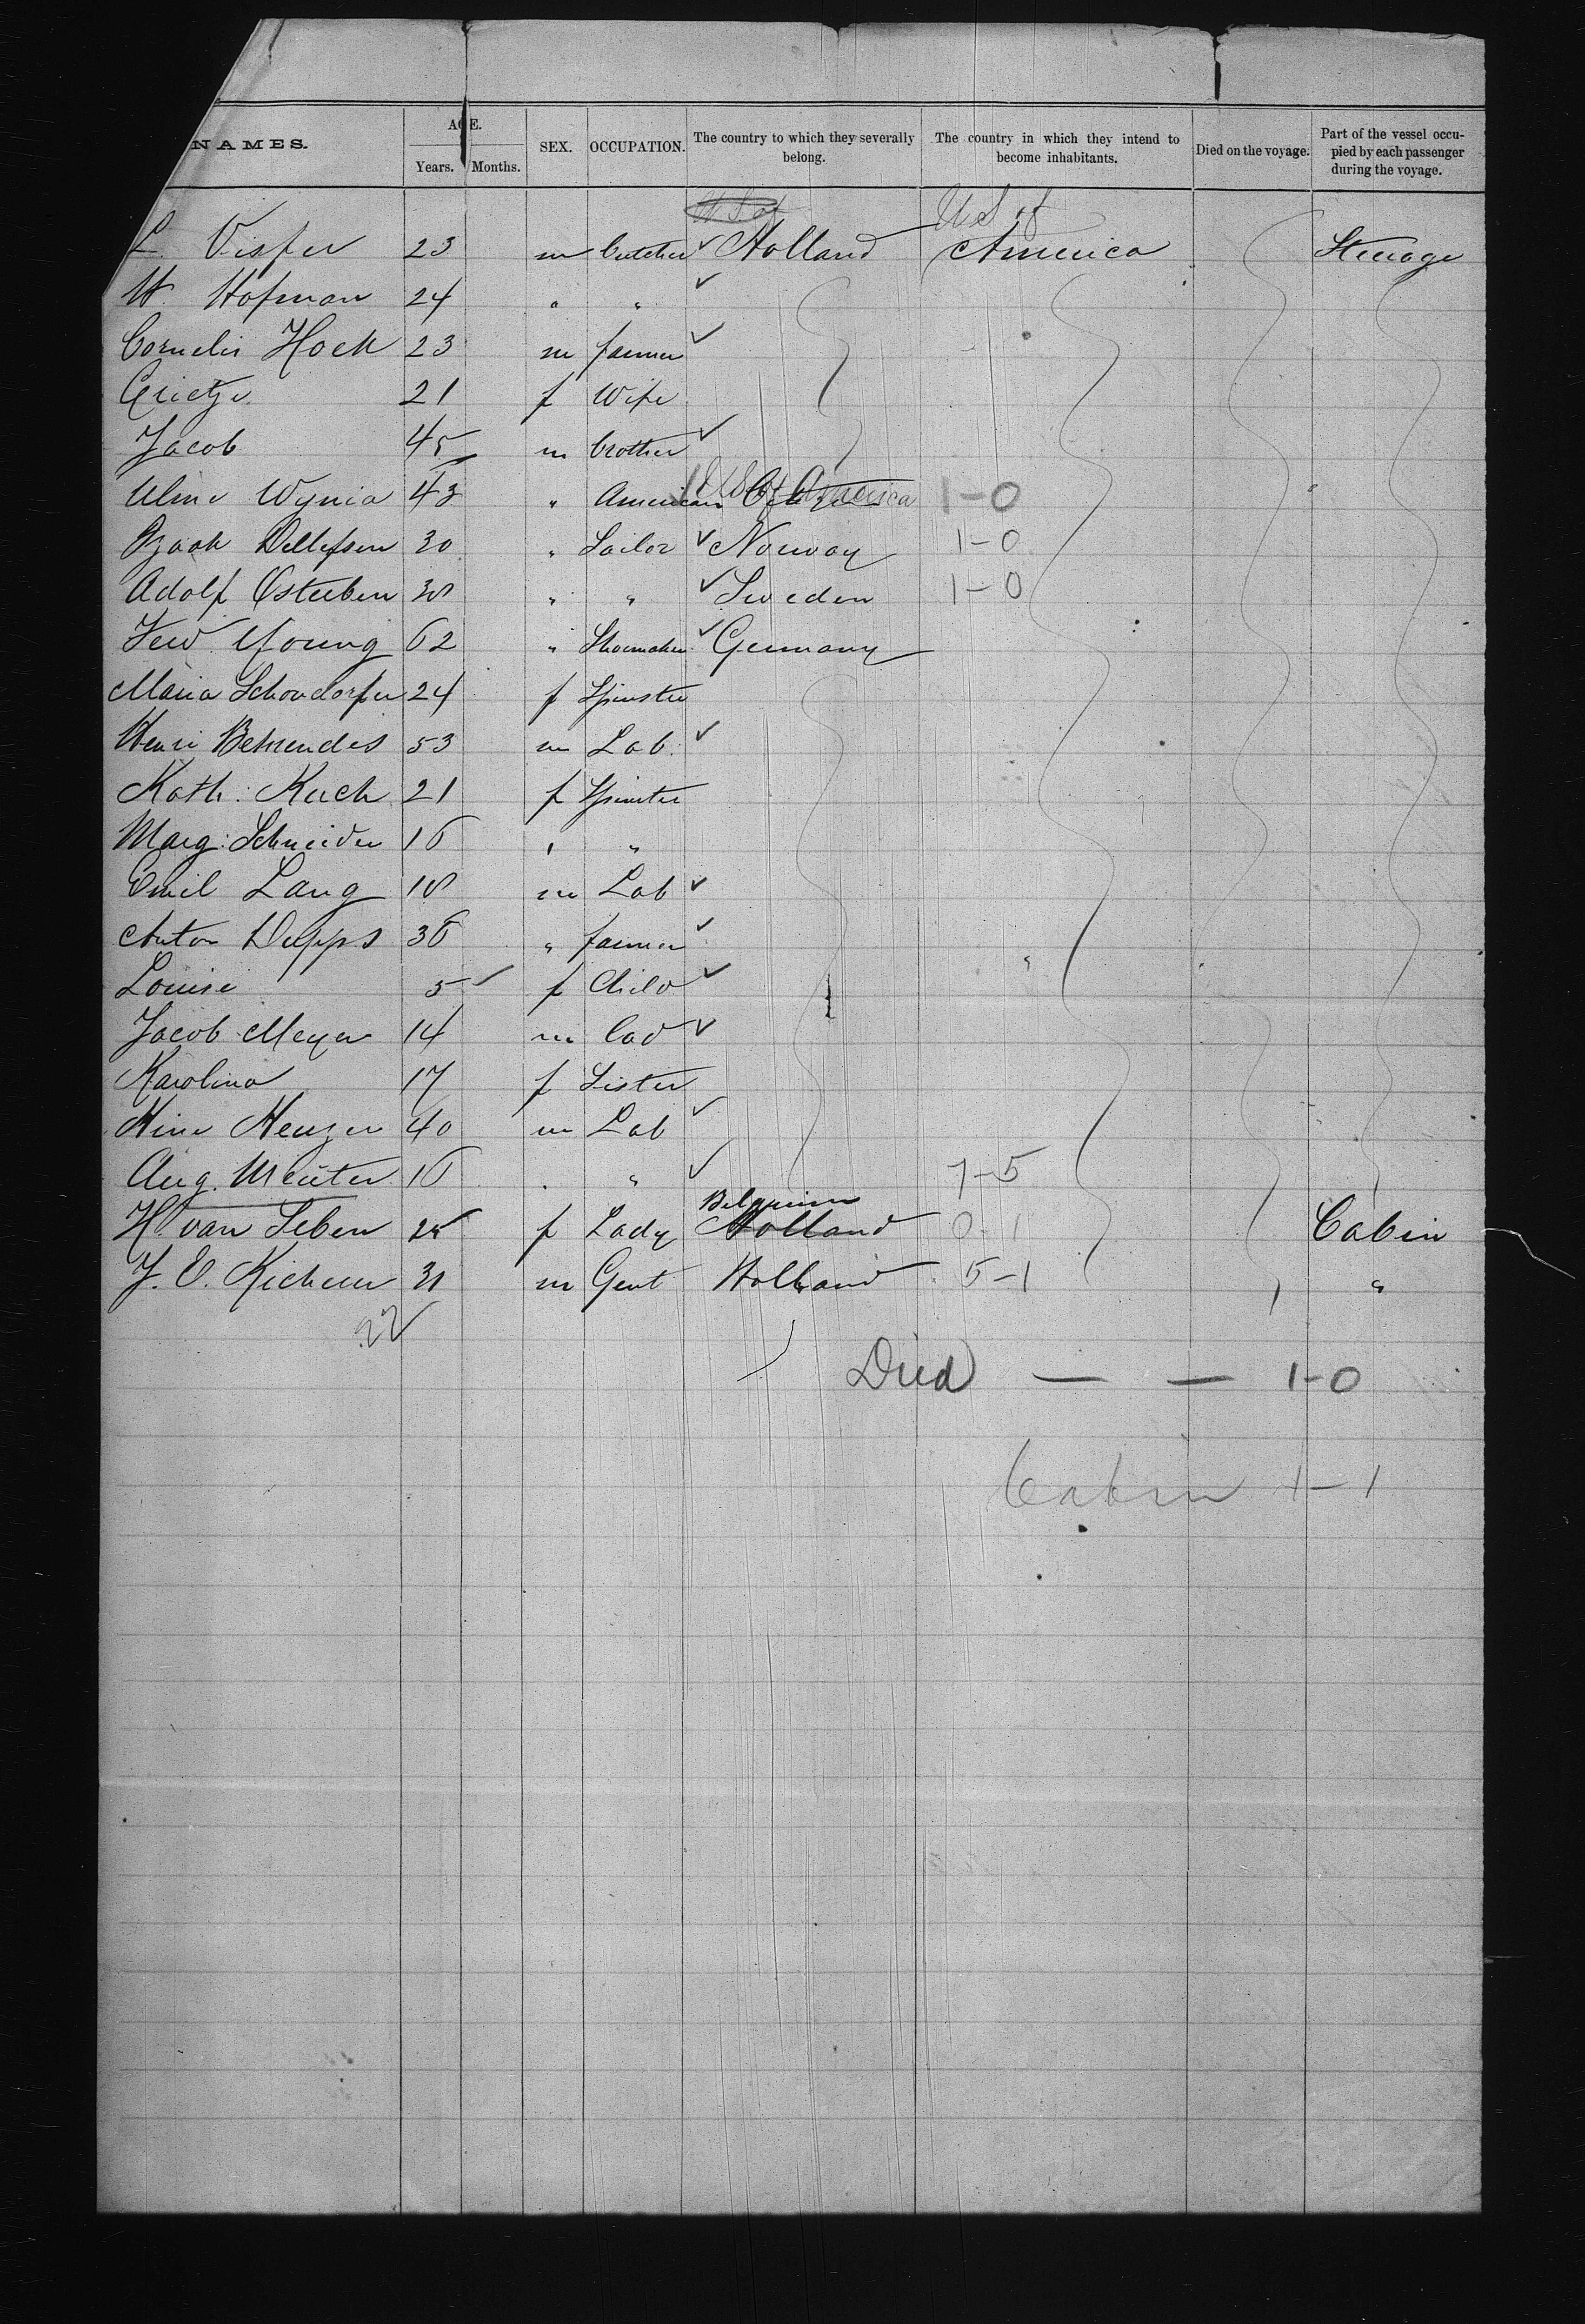 NAMES. AGE. Years. Months. SEX. OCCUPATION. The country to which they severally belong. The country in which they intend to become inhabitants. Died on the voyage. Part of the vessel occupied by each passenger during the voyage.
U S of
L. Visser 23 m butcher Holland America Steerage
H. Hofman 24 " "
Cornelis Hoek 23 m farmer
Grietje 21 f Wife
Jacob 45 m brother
Wynia 43 " American U S of America 1-0
30 " Sailor Norway 1-0
Adolf 30 " " Sweden 1-0
Young 62 " Shoemaker Germany
Maria Schondorfer 24 f Spinster
Henri Behrendes 53 m Lab.
Kath: Kuch 21 f Spinster
Marg: Schneider 16 " "
Emil Lang 18 m Lab
Anton Depps 36 " farmer
Louise 5 f Child
Jacob Meyer 14 m Lad
Karolina 17 f Sister
40 m Lab
Aug. 16 " " 7-5
Belgium
H. van Leben f Lady Holland 0-1 Cabin
J. E. 31 m Gent Holland 5-1 "
22
Died — — 1-0
Cabin 1-1